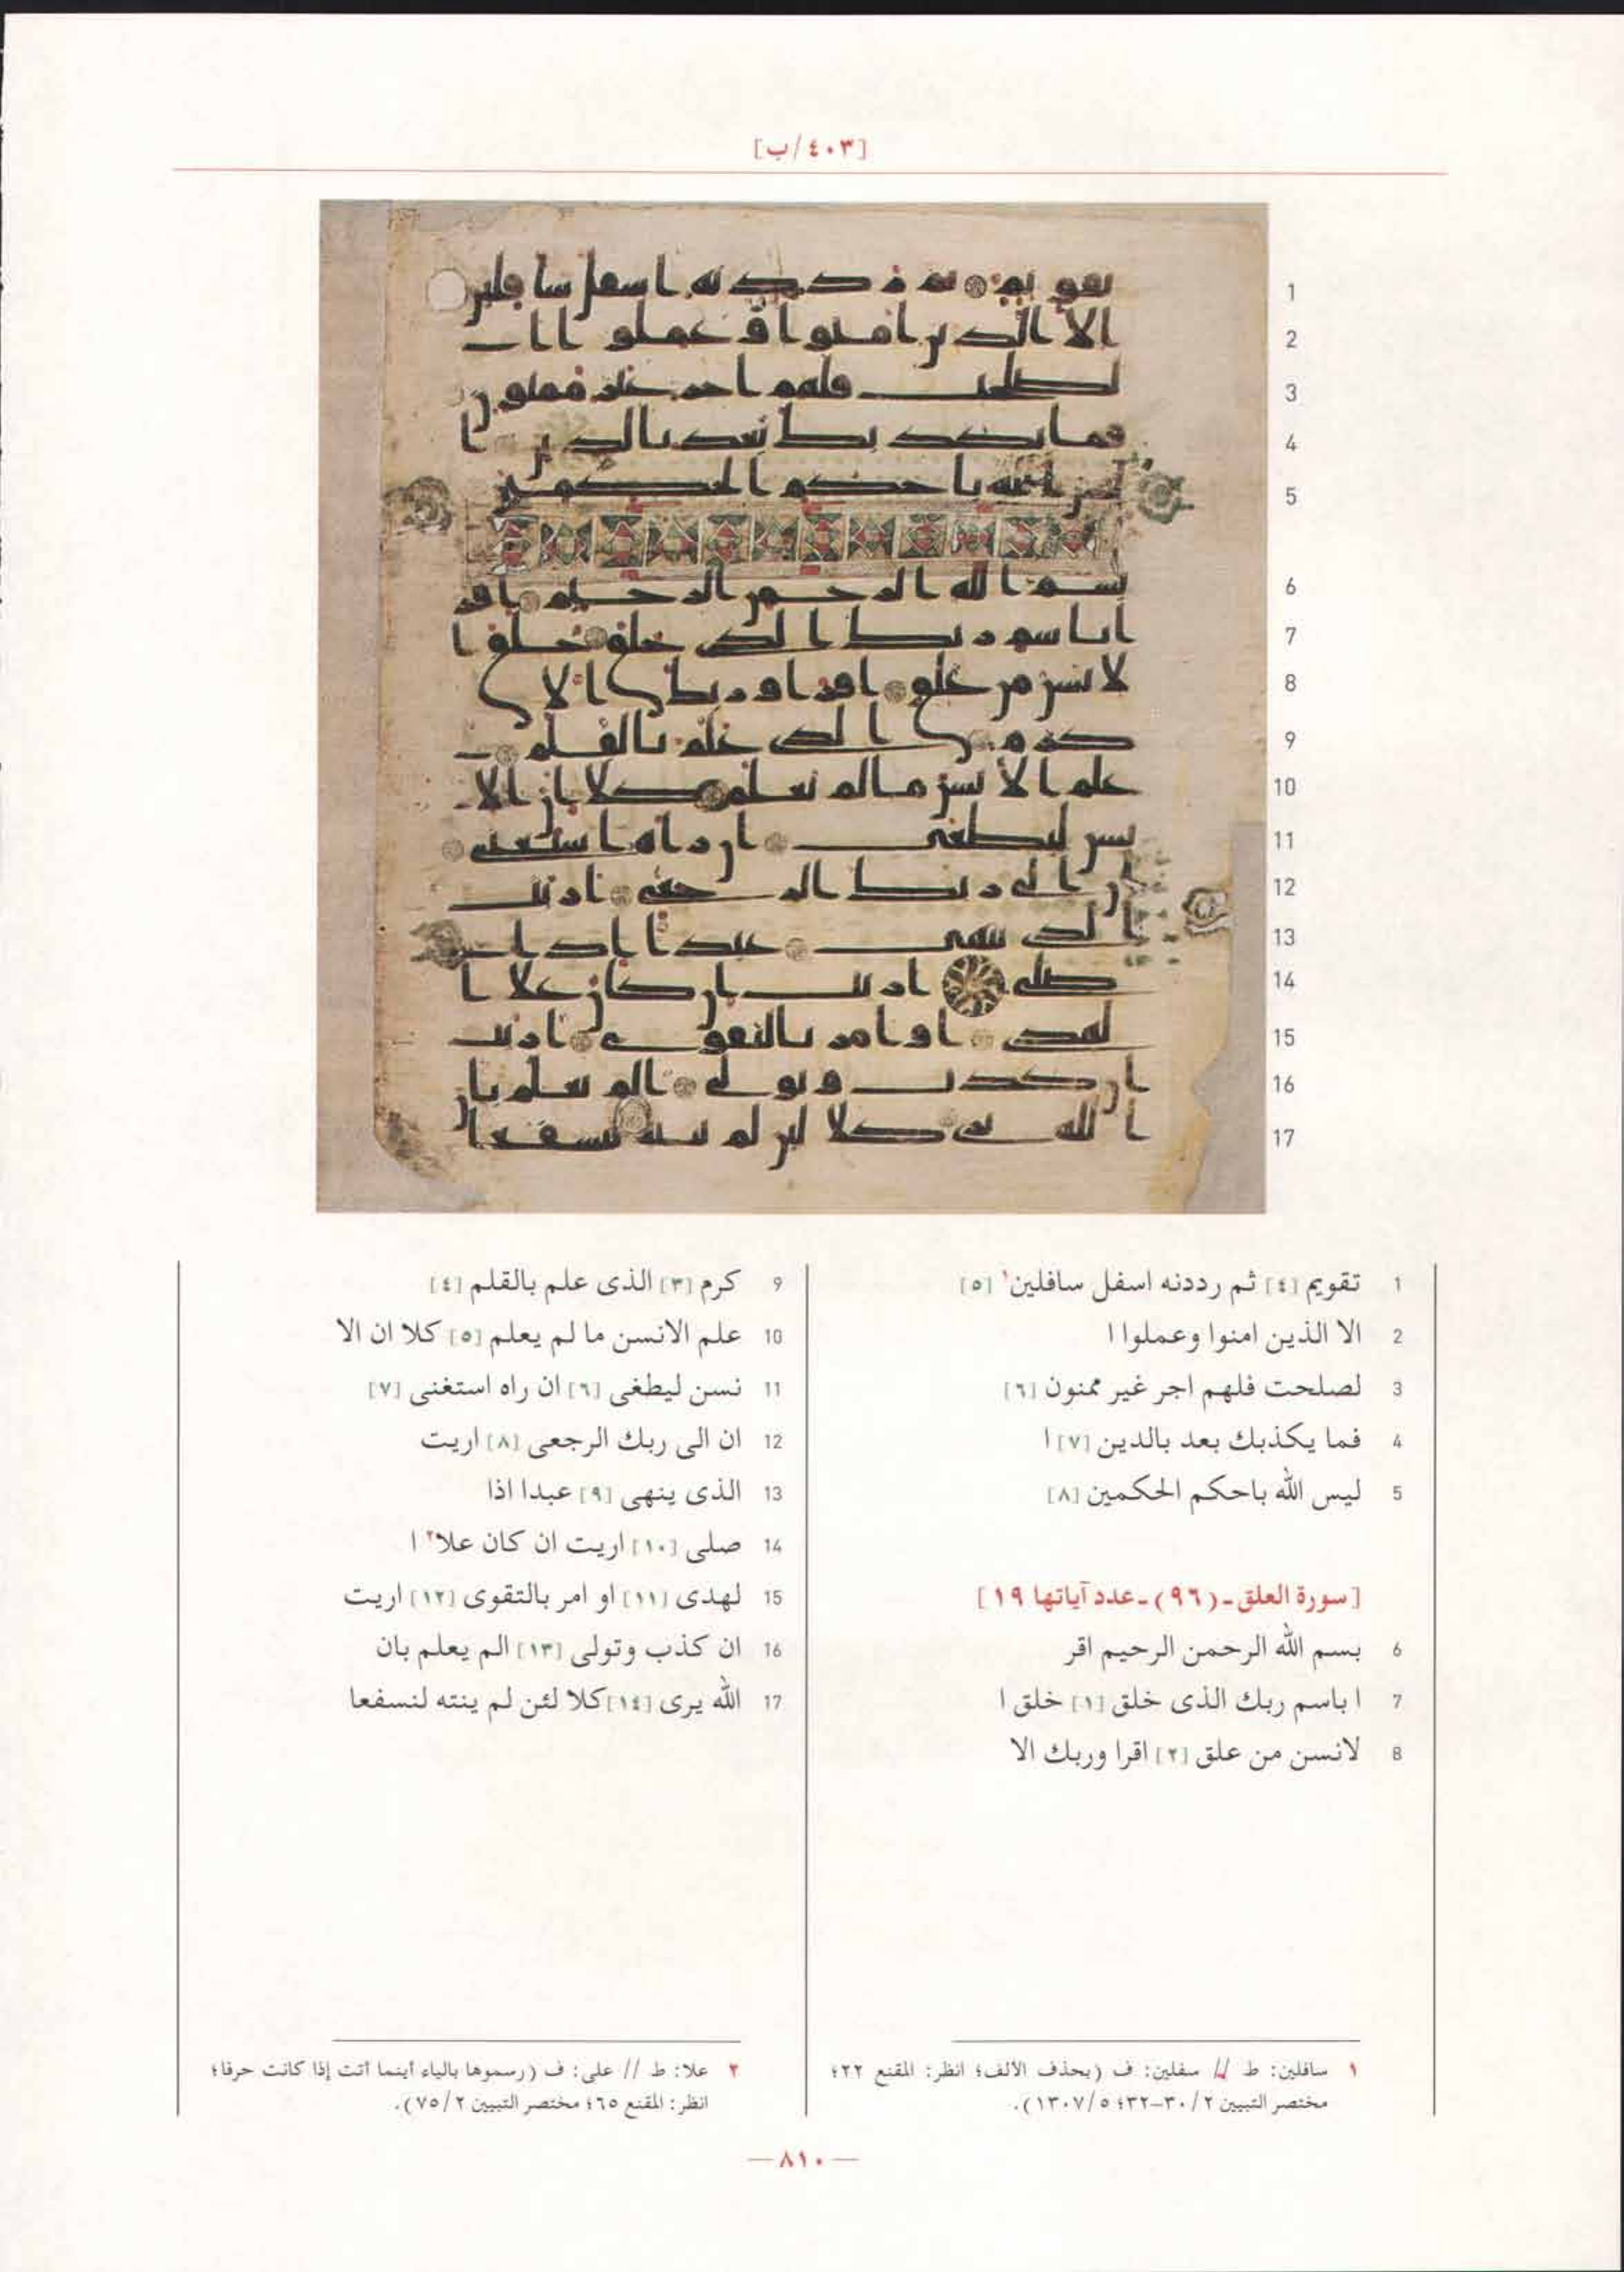 [٤٠٣/ب]
1 تقويم [٤] ثم رددنه اسفل سافلين١ [٥]
2 الا الذين امنوا وعملوا ا
3 لصلحت فلهم اجر غير ممنون [٦]
4 فما يكذبك بعد بالدين [٧] ا
5 ليس الله باحكم الحكمين [٨]
[سورة العلق-(٩٦)-عدد آياتها ١٩]
6 بسم الله الرحمن الرحيم اقر
7 ا باسم ربك الذى خلق [١] خلق ا
8 لانسن من علق [٢] اقرا وربك الا
9 كرم [٣] الذى علم بالقلم [٤]
10 علم الانسن ما لم يعلم [٥] كلا ان الا
11 نسن ليطغى [٦] ان راه استغنى [٧]
12 ان الى ربك الرجعى [٨] اريت
13 الذى ينهى [٩] عبدا اذا
14 صلى [١٠] اريت ان كان علا٢ ا
15 لهدى [١١] او امر بالتقوى [١٢] اريت
16 ان كذب وتولى [١٣] الم يعلم بان
17 الله يرى [١٤] كلا لئن لم ينته لنسفعا
١ سافلين: ط // سفلين: ف (بحذف الألف؛ انظر: المقنع ٢٢؛
مختصر التبيين ٣٠/٢–٣٢؛ ١٣٠٧/٥).
٢ علا: ط // على: ف (رسموها بالياء أينما أتت إذا كانت حرفا؛
انظر: المقنع ٦٥؛ مختصر التبيين ٧٥/٢).
— ٨١٠ —